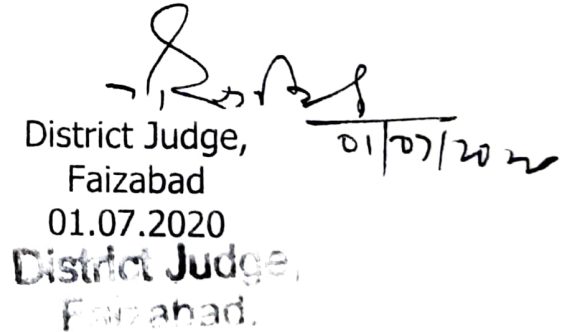 01/07/2020
District Judge,
Faizabad
01.07.2020
District Judge,
Faizabad.